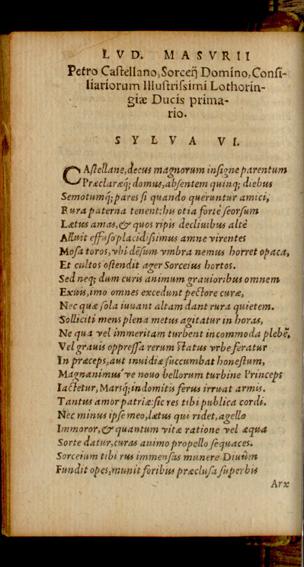 LVD. MASVRII
Petro Castellano, Sorceñ Domino, Consi-
liariorum Illustrissimi Lothorin-
giæ Ducis prima-
rio.
SYLVA VI.
CAstellane, decus magnorum insigne parentum
Præclaræq; domus, absentem quinq; diebus
Semotumq; pares si quando queruntur amici,
Rura paterna tenent: hu otia fortè seorsum
Lætus amas, & quos ripis decliuibus altè
Alluit effuso placidissimus amne virentes
Mosa toros, vbi dēsum vmbra nemus horret opaca,
Et cultos ostendit ager Sorceius hortos.
Sed neq; dum curis animum grauioribus omnem
Exuis, imo omnes excedunt pectore curæ,
Nec quæ sola iuuant altam dant rura quietem.
Solliciti mens plena metus agitatur in horas,
Ne qua vel immeritam turbent incommoda plebē,
Vel grauis oppressa rerum status vrbe feratur
In præceps, aut inuidiæ succumbat honestum,
Magnanimus ve nouo bellorum turbine Princeps
Iactetur, Marsq; indomitis ferus irruat armis.
Tantus amor patriæ: sic res tibi publica cordi.
Nec minus ipse meo, lætus qui ridet, agello
Immoror, & quantum vitæ ratione vel æqua
Sorte datur, curas animo propello sequaces.
Sorceium tibi rus immensas munere Diuûm
Fundit opes, munit foribus præclusa superbis
Arx